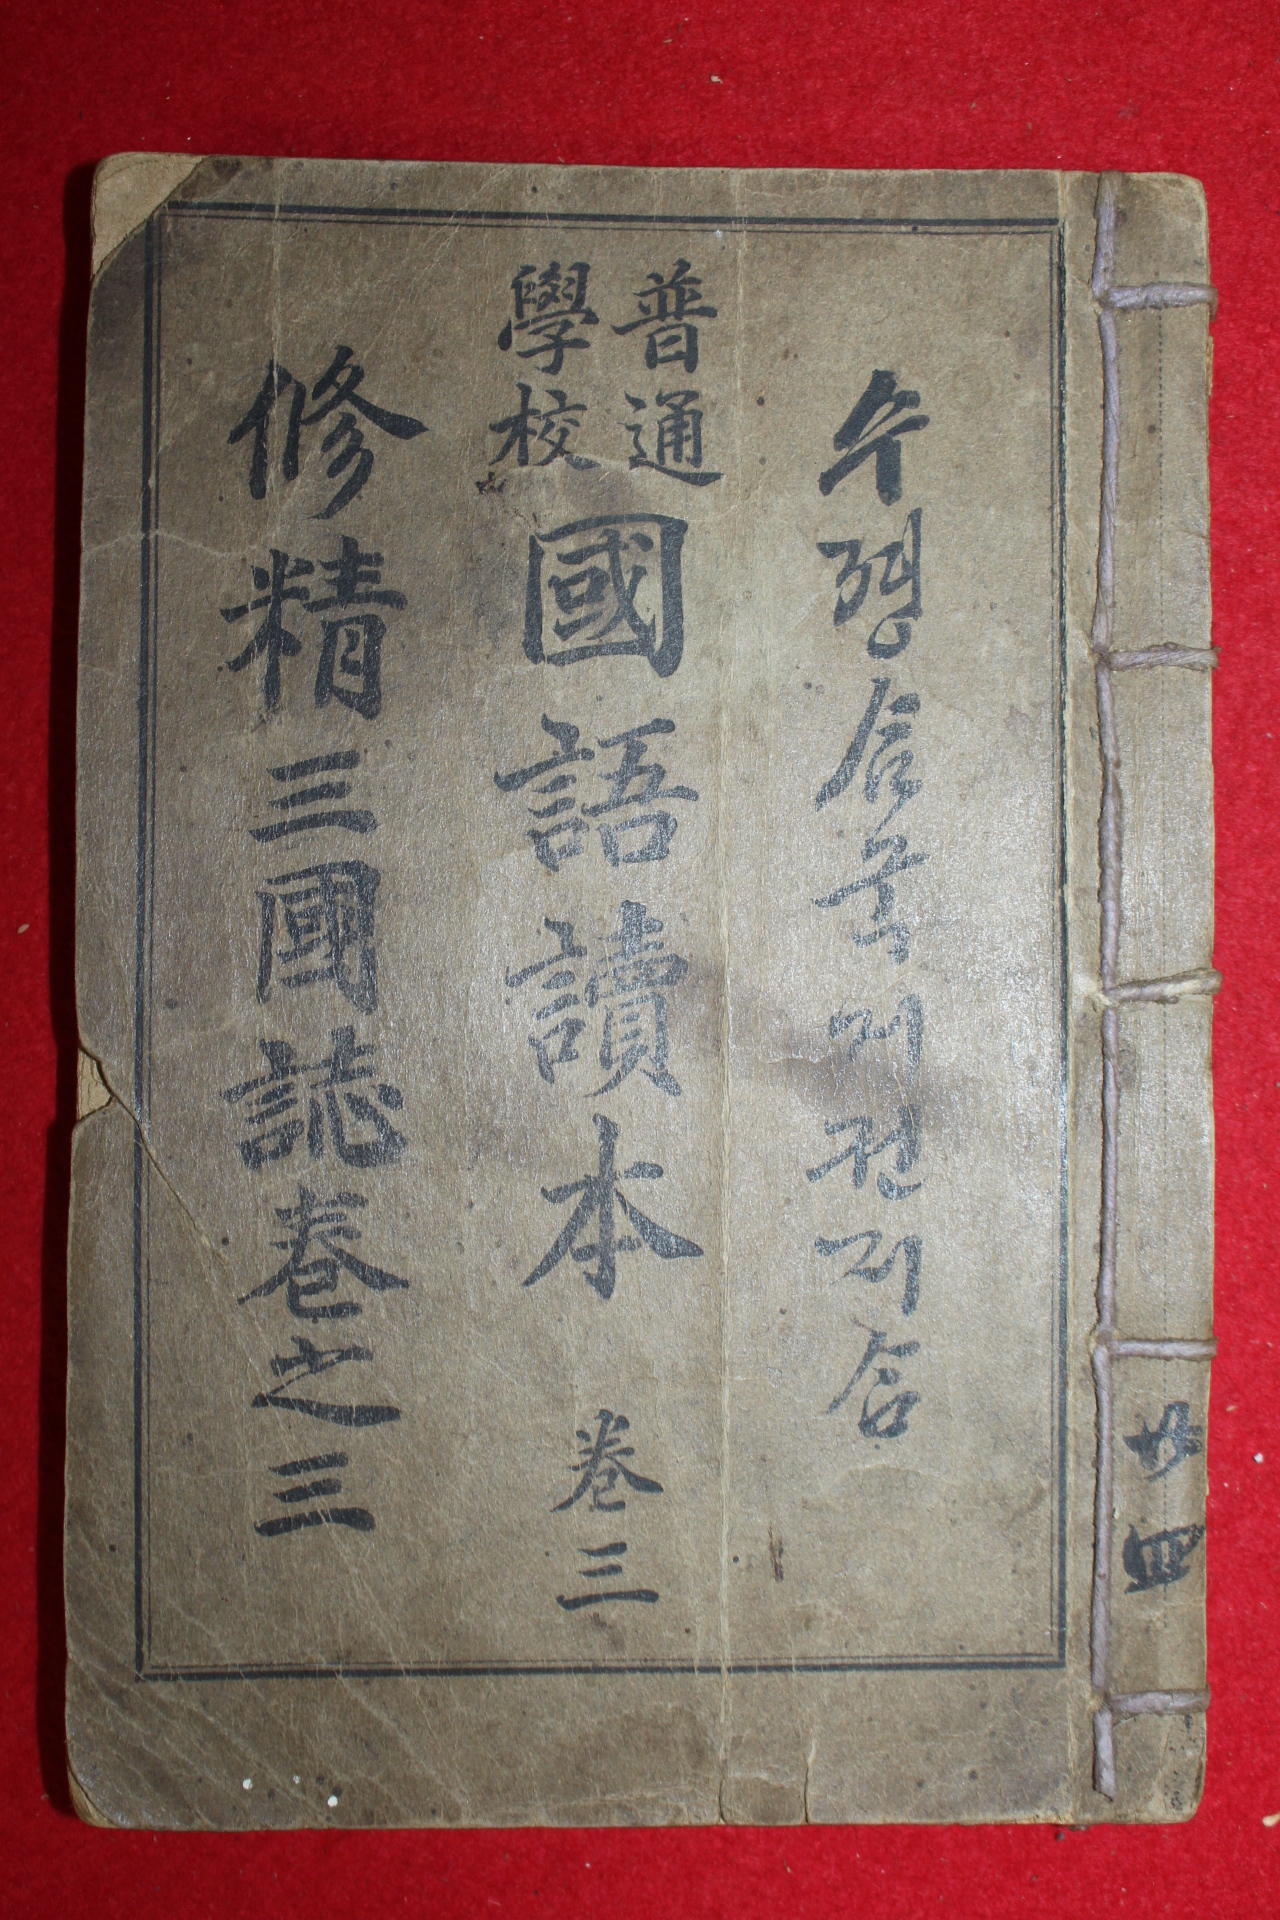 共四
수졍삼국지권지삼
普通
學校
國語讀本 卷三
修精三國誌卷之三